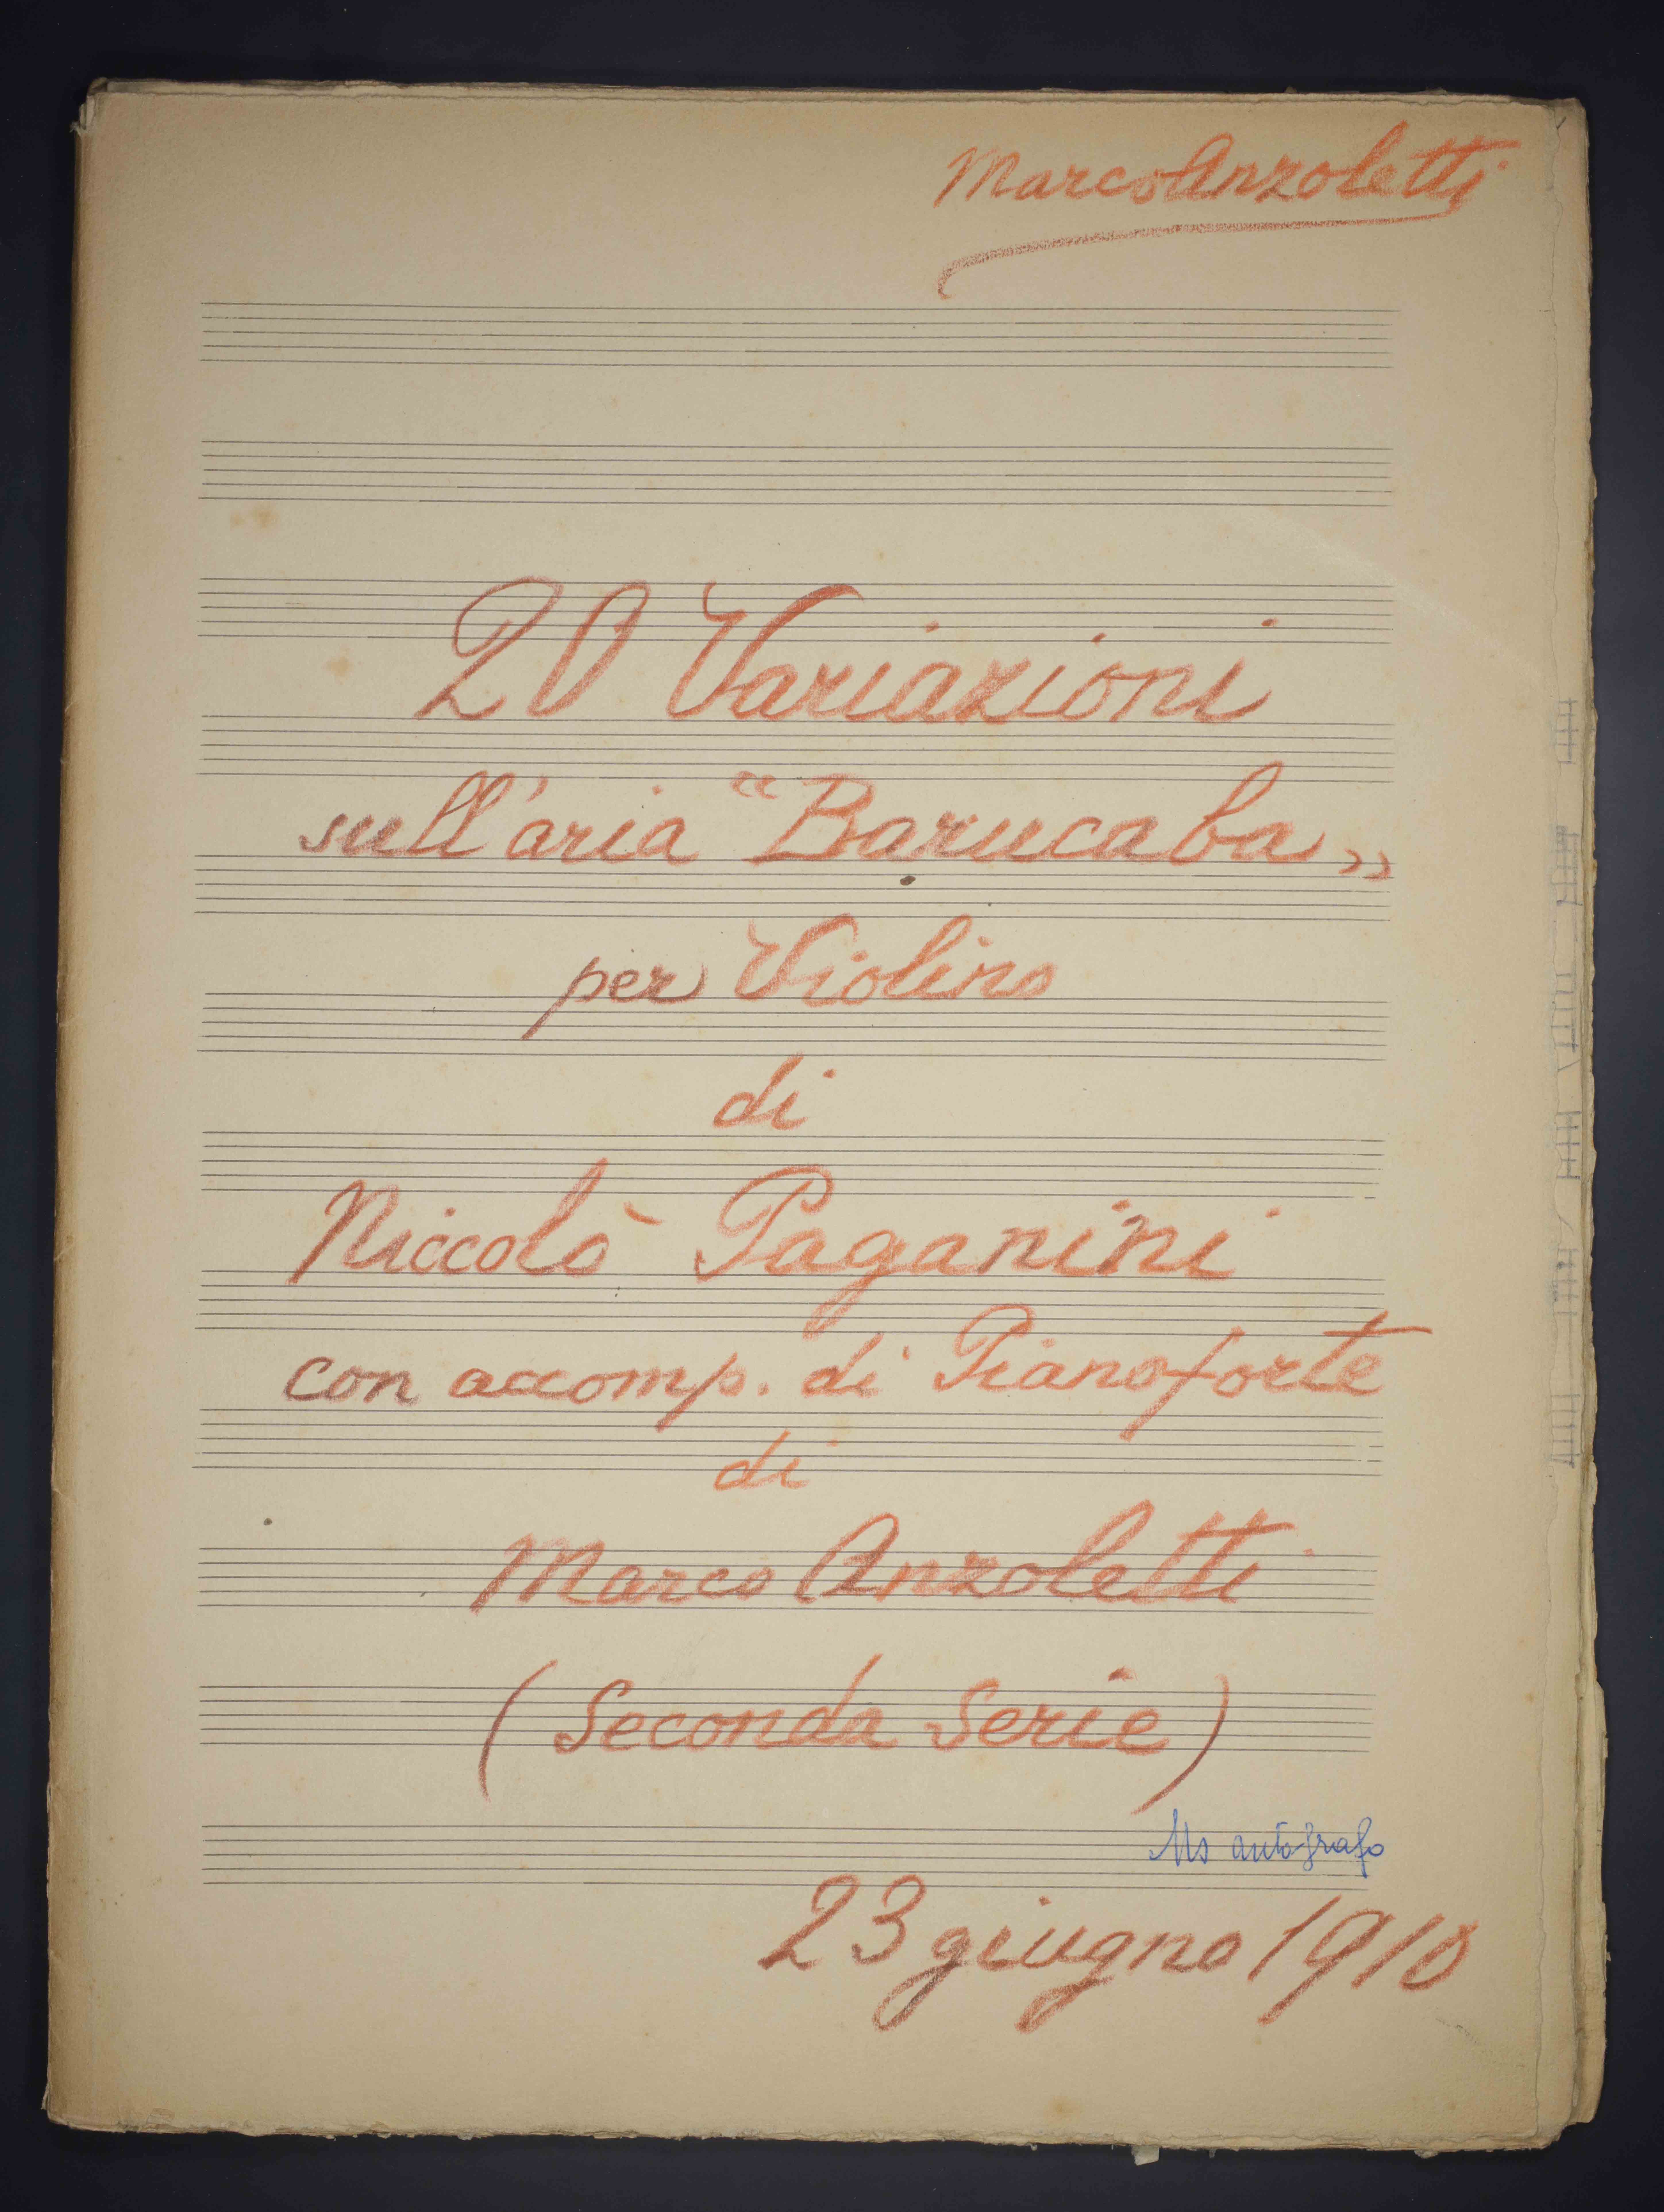 Marco Anzoletti
20 Variazioni
sull'aria “Barucaba„
per Violino
di
Niccolò Paganini
con accomp. di Pianoforte
di
Marco Anzoletti
(Seconda Serie)
Ms autografo
23 giugno 1910